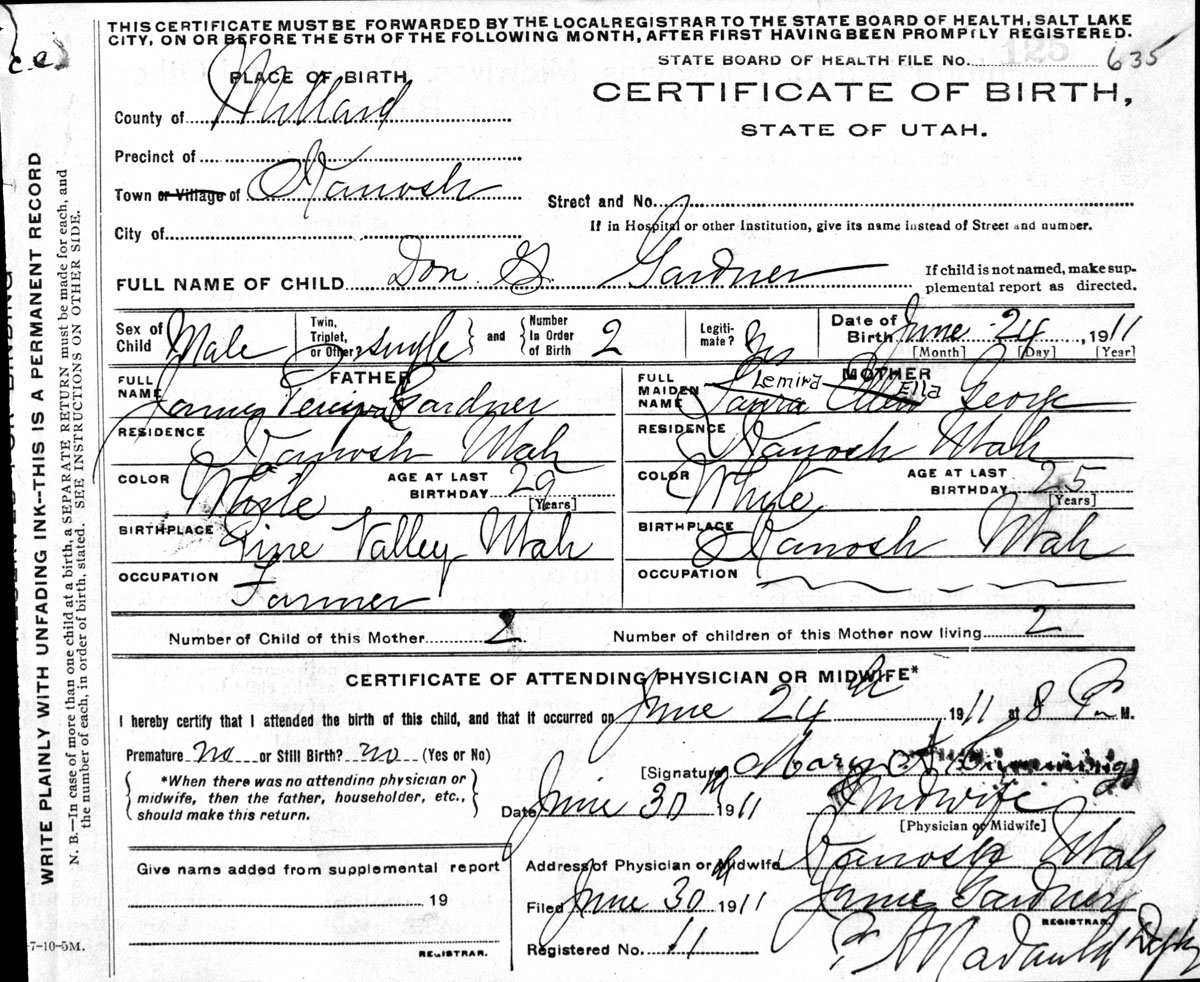 THIS CERTIFICATE MUST BE FORWARDED BY THE LOCAL REGISTRAR TO THE STATE BOARD OF HEALTH, SALT LAKE
CITY, ON OR BEFORE THE 5TH OF THE FOLLOWING MONTH, AFTER FIRST HAVING BEEN PROMPTLY REGISTERED.
c.c.
STATE BOARD OF HEALTH FILE No. 635
PLACE OF BIRTH,
CERTIFICATE OF BIRTH,
STATE OF UTAH.
County of Millard
Precinct of
Town or Village of Kanosh
Street and No.
City of
If in Hospital or other Institution, give its name instead of Street and number.
FULL NAME OF CHILD Don G. Gardner
If child is not named, make sup-
plemental report as directed.
Sex of Child Male Twin, Triplet, or Other? single and Number In Order of Birth 2 Legiti- mate? Yes Date of Birth June 24, 1911
[Month] [Day] [Year]
FATHER MOTHER
FULL NAME James Gardner FULL MAIDEN NAME Laura Ellen Lemira Ella George
RESIDENCE Kanosh Utah RESIDENCE Kanosh Utah
COLOR White AGE AT LAST BIRTHDAY 29 [Years] COLOR White AGE AT LAST BIRTHDAY 25 [Years]
BIRTHPLACE Pine Valley Utah BIRTHPLACE Kanosh Utah
OCCUPATION Farmer OCCUPATION
Number of Child of this Mother 2 Number of children of this Mother now living 2
CERTIFICATE OF ATTENDING PHYSICIAN OR MIDWIFE*
I hereby certify that I attended the birth of this child, and that it occurred on June 24 th 1911 at 8 P M.
Premature no or Still Birth? no (Yes or No)
[Signature
*When there was no attending physician or
midwife, then the father, householder, etc.,
should make this return.
Date June 30 th 1911 Midwife
[Physician or Midwife]
Address of Physician or Midwife Kanosh Utah
Give name added from supplemental report
19
Filed June 30 th 1911 James Gardner
REGISTRAR.
Registered No. 11
REGISTRAR.
7-10-5M.
WRITE PLAINLY WITH UNFADING INK--THIS IS A PERMANENT RECORD
N. B.--In case of more than one child at birth, a SEPARATE RETURN must be made for each, and
the number of each, in order of birth, stated. SEE INSTRUCTIONS ON OTHER SIDE.